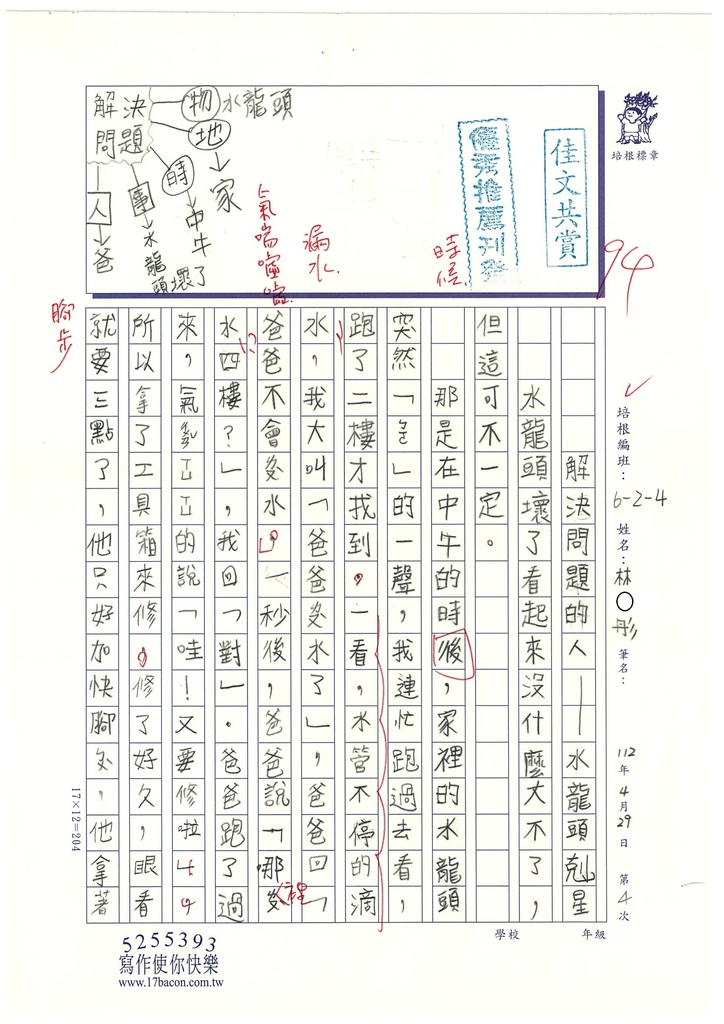 解決問題
物 水龍頭
地 → 家
時 → 中午
事 → 水龍頭壞了
人 → 爸
氣喘噓噓
漏水
時候
腳步
優秀推薦刊登
佳文共賞
培根標章
94
培根編班：6-2-4 姓名：林○彤 筆名：
112年4月29日 第4次
學校 年級
解決問題的人——水龍頭剋星
水龍頭壞了看起來沒什麼大不了，
但這可不一定。
那是在中午的時後，家裡的水龍頭
突然「ㄅㄛ」的一聲，我連忙跑過去看，
跑了二樓才找到。一看，水管不停的滴
水，我大叫「爸爸ㄌㄡ水了」，爸爸回「
爸爸不會ㄌㄡ水。」一秒後，爸爸說「哪
水四樓？」，我回「對」。爸爸跑了過
來，氣ㄔㄨㄢˇㄒㄩㄒㄩ的說「哇！又要修啦」。
所以拿了工具箱來修，修了好久，眼看
就要三點了，他只好加快腳ㄅㄨˋ，他拿著
17×12=204
5255393
寫作使你快樂
www.17bacon.com.tw